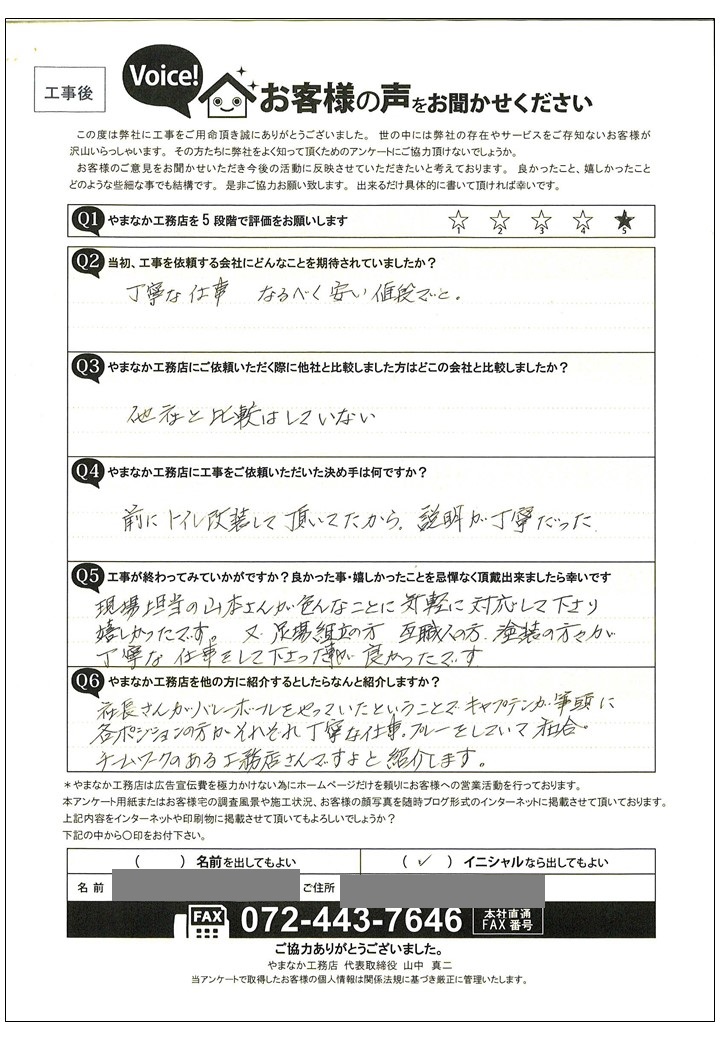 工事後
Voice!
お客様の声をお聞かせください
この度は弊社に工事をご用命頂き誠にありがとうございました。 世の中には弊社の存在やサービスをご存知ないお客様が
沢山いらっしゃいます。 その方たちに弊社をよく知って頂くためのアンケートにご協力頂けないでしょうか。
お客様のご意見をお聞かせいただき今後の活動に反映させていただきたいと考えております。 良かったこと、嬉しかったこと
どのような些細な事でも結構です。 是非ご協力お願い致します。 出来るだけ具体的に書いて頂ければ幸いです。
Q1 やまなか工務店を5段階で評価をお願いします
1 2 3 4 5
Q2 当初、工事を依頼する会社にどんなことを期待されていましたか?
丁寧な仕事 なるべく安い値段でと。
Q3 やまなか工務店にご依頼いただく際に他社と比較しました方はどこの会社と比較しましたか?
他社と比較はしていない
Q4 やまなか工務店に工事をご依頼いただいた決め手は何ですか?
前にトイレ改装して頂いてたから。説明が丁寧だった
Q5 工事が終わってみていかがですか?良かった事・嬉しかったことを忌憚なく頂戴出来ましたら幸いです
現場担当の山本さんが色んなことに気軽に対応して下さり
嬉しかったです。 又 足場組立の方 瓦職人の方、塗装の方々が
丁寧な仕事をして下さった事が良かったです
Q6 やまなか工務店を他の方に紹介するとしたらなんと紹介しますか?
社長さんがバレーボールをやっていたということでキャプテンが筆頭に
各ポジションの方がそれぞれ丁寧な仕事。プレーをしていて
チームワークのある工務店さんですよと紹介します。
*やまなか工務店は広告宣伝費を極力かけない為にホームページだけを頼りにお客様への営業活動を行っております。
本アンケート用紙またはお客様宅の調査風景や施工状況、お客様の顔写真を随時ブログ形式のインターネットに掲載させて頂いております。
上記内容をインターネットや印刷物に掲載させて頂いてもよろしいでしょうか?
下記の中から〇印をお付下さい。
( ) 名前を出してもよい ( ✓ ) イニシャルなら出してもよい
名前 ご住所
FAX 072-443-7646 本社直通 FAX番号
ご協力ありがとうございました。
やまなか工務店 代表取締役 山中 真二
当アンケートで取得したお客様の個人情報は関係法規に基づき厳正に管理いたします。